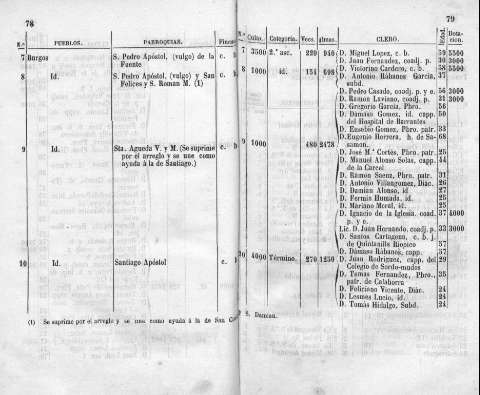 78
N.º PUEBLOS. PARROQUIAS. Fincas
7 Burgos S. Pedro Apóstol, (vulgo) de la Fuente c. h
8 Id. S. Pedro Apóstol, (vulgo) y San Felices y S. Roman M. (1) c. h
9 Id. Sta. Agueda V. y M. (Se suprime por el arreglo y se une como ayuda à la de Santiago.) c. h
10 Id. Santiago Apóstol c. h
(1) Se suprime por el arreglo y se une como ayuda á la de San
79
N.º Culto. Categoría. Vecs. almas. CLERO. Edad. Dotacion.
7 3500 2.º asc. 220 940 D. Miguel Lopez, c. b. 59 5500
D. Juan Fernandez, coad. p. 30 3000
8 5000 id. 154 698 D. Victorino Cardero, c. b. 58 5500
D. Antonio Rábanos García, subd. 37
D. Pedro Casado, coadj. p. y e. 56 3000
D. Ramon Laviano, coadj. p. 31 3000
D. Gregorio García, Pbro. 56
D. Dámaso Gomez, id. capp. del Hospital de Barrantes 50
D. Eusebio Gomez, Pbro. patr. 33
9 7000 480 2478 D. Eugenio Herrera, b. de Sasamon. 68
D. José M.ª Cortés, Pbro. patr. 25
D. Manuel Alonso Salas, capp. de la Carcel 44
D. Ramon Saenz, Pbro. patr. 31
D. Antonio Villangomez, Diác. 26
D. Damian Alonso, id 27
D. Fermin Humada, id. 25
D. Mariano Moral, id. 25
D. Ignacio de la Iglesia, coad. p. y e. 37 4000
Lic. D. Juan Hernando, coadj. p. 33 3000
D. Santos Cartagena, c. b. j. de Quintanilla Riopico 57
D. Dámaso Rábanos, capp. 57
10 4000 Término. 270 1250 D. Juan Rodriguez, capp. del Colegio de Sordo-mudos 29
D. Tomas Fernandez, Pbro., patr. de Calahorra 35
D. Feliciano Vicente, Diác. 24
D. Lesmes Lucio, id. 24
D. Tomás Hidalgo, Subd. 24